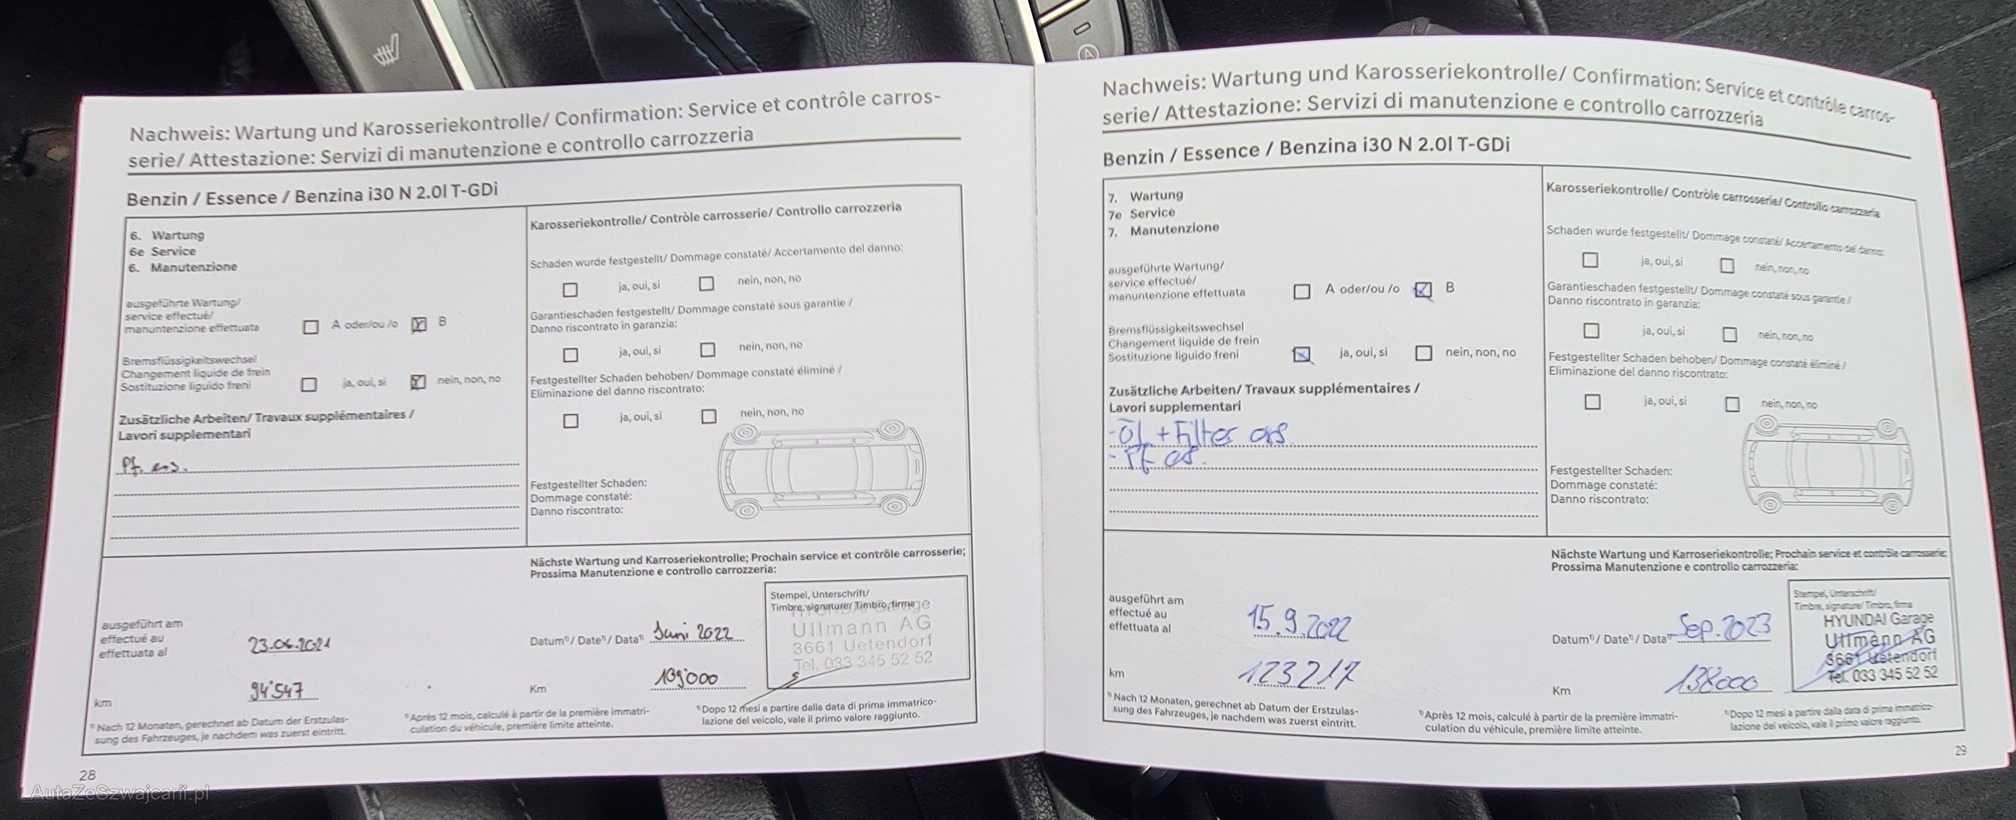 Nachweis: Wartung und Karosseriekontrolle/ Confirmation: Service et contrôle carros-
serie/ Attestazione: Servizi di manutenzione e controllo carrozzeria
Benzin / Essence / Benzina i30 N 2.0l T-GDi
6. Wartung
6e Service
6. Manutenzione
ausgeführte Wartung/
service effectué/
manuntenzione effettuata
A oder/ou /o
B
Bremsflüssigkeitswechsel
Changement liquide de frein
Sostituzione liguido freni
ja, oui, si
nein, non, no
Zusätzliche Arbeiten/ Travaux supplémentaires /
Lavori supplementari
Pf. ers.
Karosseriekontrolle/ Contrôle carrosserie/ Controllo carrozzeria
Schaden wurde festgestellt/ Dommage constaté/ Accertamento del danno:
ja, oui, si
nein, non, no
Garantieschaden festgestellt/ Dommage constaté sous garantie /
Danno riscontrato in garanzia:
ja, oui, si
nein, non, no
Festgestellter Schaden behoben/ Dommage constaté éliminé /
Eliminazione del danno riscontrato:
ja, oui, si
nein, non, no
Festgestellter Schaden:
Dommage constaté:
Danno riscontrato:
ausgeführt am
effectué au
effettuata al
23.06.2021
km
94'547
Nächste Wartung und Karroseriekontrolle; Prochain service et contrôle carrosserie;
Prossima Manutenzione e controllo carrozzeria:
Datum¹⁾/ Date¹⁾/ Data¹⁾
Juni 2022
Km
109'000
Stempel, Unterschrift/
Timbre, signature/ Timbro, firma
Ullmann AG
3661 Uetendorf
Tel. 033 345 52 52
¹⁾ Nach 12 Monaten, gerechnet ab Datum der Erstzulas-
sung des Fahrzeuges, je nachdem was zuerst eintritt.
¹⁾Après 12 mois, calculé à partir de la première immatri-
culation du véhicule, première limite atteinte.
¹⁾Dopo 12 mesi a partire dalla data di prima immatrico-
lazione del veicolo, vale il primo valore raggiunto.
28
AutaZeSzwajcarii.pl
Nachweis: Wartung und Karosseriekontrolle/ Confirmation: Service et contrôle carros-
serie/ Attestazione: Servizi di manutenzione e controllo carrozzeria
Benzin / Essence / Benzina i30 N 2.0l T-GDi
7. Wartung
7e Service
7. Manutenzione
ausgeführte Wartung/
service effectué/
manuntenzione effettuata
A oder/ou /o
B
Bremsflüssigkeitswechsel
Changement liquide de frein
Sostituzione liguido freni
ja, oui, si
nein, non, no
Zusätzliche Arbeiten/ Travaux supplémentaires /
Lavori supplementari
- Öl + Filter ers
- Pf ers.
Karosseriekontrolle/ Contrôle carrosserie/ Controllo carrozzeria
Schaden wurde festgestellt/ Dommage constaté/ Accertamento del danno:
ja, oui, si
nein, non, no
Garantieschaden festgestellt/ Dommage constaté sous garantie /
Danno riscontrato in garanzia:
ja, oui, si
nein, non, no
Festgestellter Schaden behoben/ Dommage constaté éliminé /
Eliminazione del danno riscontrato:
ja, oui, si
nein, non, no
Festgestellter Schaden:
Dommage constaté:
Danno riscontrato:
ausgeführt am
effectué au
effettuata al
15.9.2022
km
123217
Nächste Wartung und Karroseriekontrolle; Prochain service et contrôle carrosserie;
Prossima Manutenzione e controllo carrozzeria:
Datum¹⁾/ Date¹⁾/ Data¹⁾
Sep. 2023
Km
138000
Stempel, Unterschrift/
Timbre, signature/ Timbro, firma
HYUNDAI Garage
Ullmann AG
3661 Uetendorf
Tel. 033 345 52 52
¹⁾ Nach 12 Monaten, gerechnet ab Datum der Erstzulas-
sung des Fahrzeuges, je nachdem was zuerst eintritt.
¹⁾Après 12 mois, calculé à partir de la première immatri-
culation du véhicule, première limite atteinte.
¹⁾Dopo 12 mesi a partire dalla data di prima immatrico-
lazione del veicolo, vale il primo valore raggiunto.
29